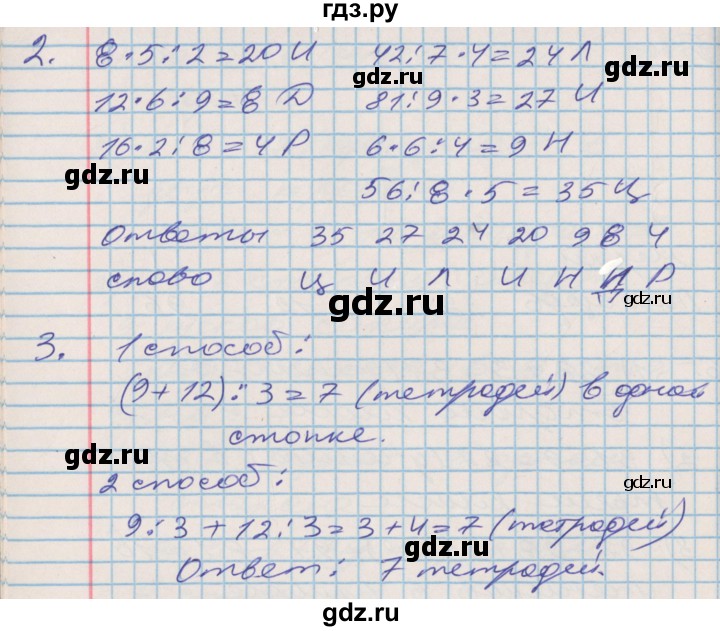 гдз.ру
2. 8·5:2=20 И 42:7·4=24 Л
gdz.ru
12·6:9=8 Д 81:9·3=27 И
gdz.ru
16·2:8=4 Р 6·6:4=9 Н
gdz.ru
56:8·5=35 Ц
Ответы 35 27 24 20 9 8 4
слово Ц И Л И Н Д Р
gdz.ru
3. 1 способ:
(9+12):3=7 (тетрадей) в одной
стопке.
gdz.ru
2 способ:
gdz.ru
9:3+12:3=3+4=7 (тетрадей)
gdz.ru
Ответ: 7 тетрадей.
gdz.ru